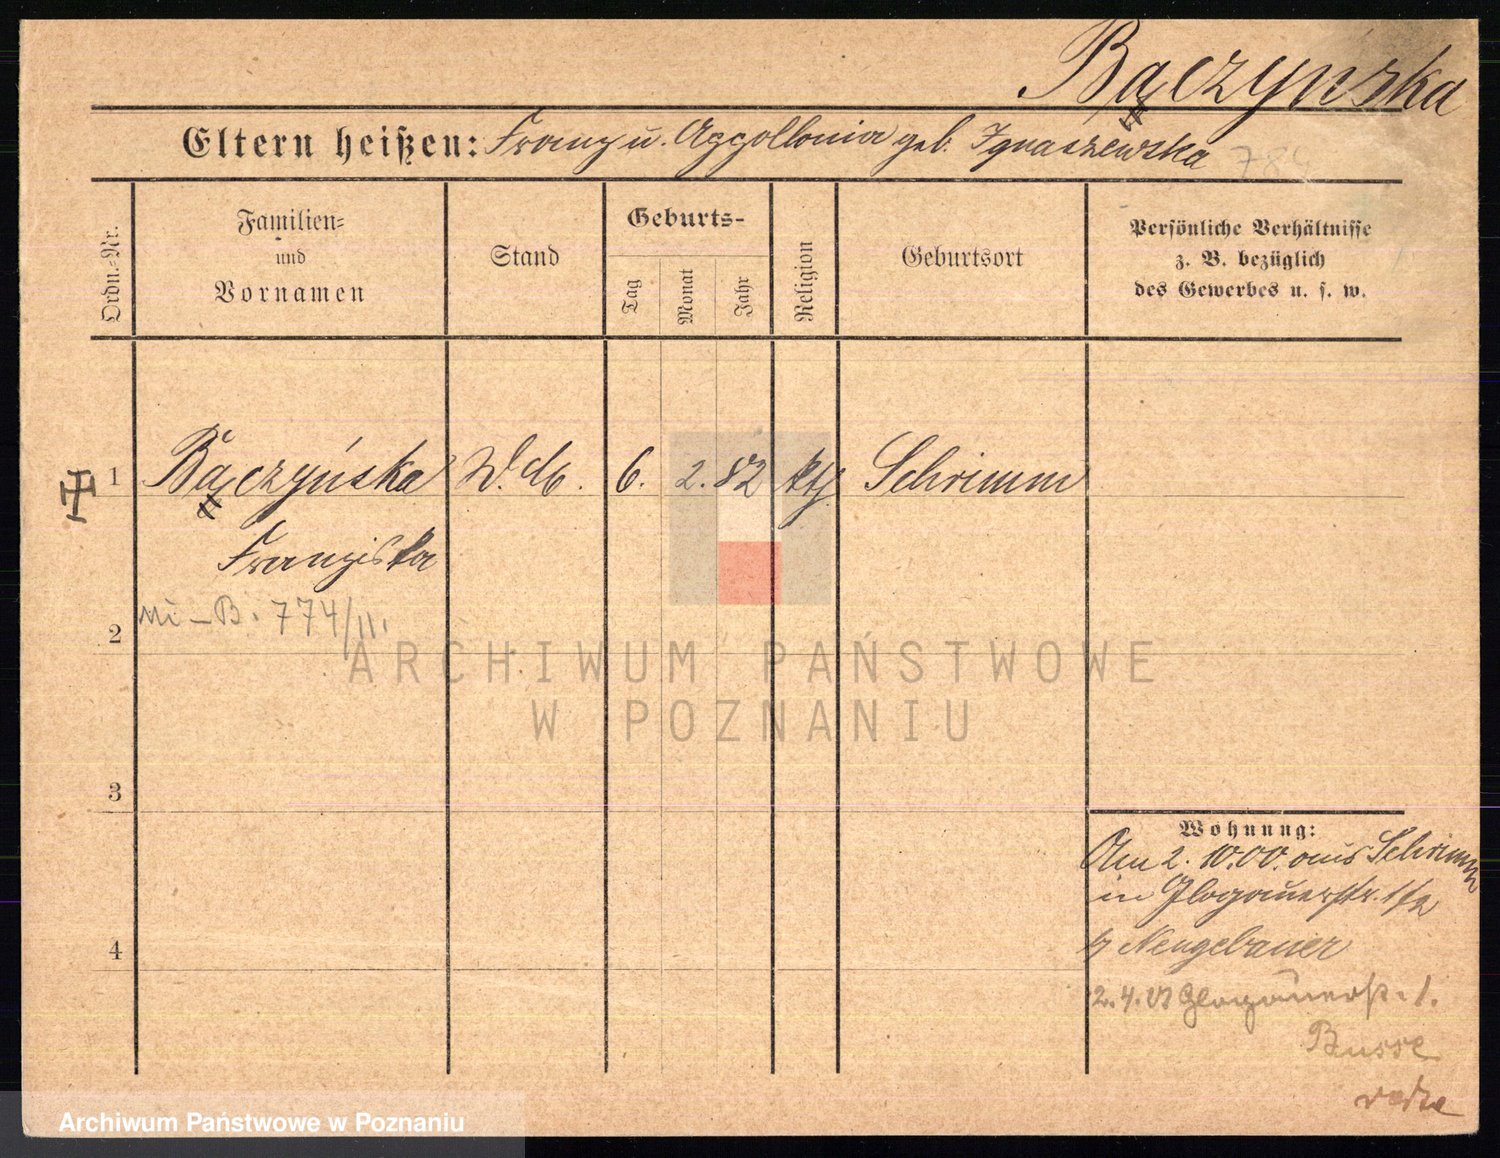 Bączyńska
Eltern heißen: Franz u. Appollonia geb. Ignaszewska 784
Ordn.-Nr.
Familien-
und
Vornamen
Stand
Geburts-
Tag
Monat
Jahr
Religion
Geburtsort
Persönliche Verhältnisse
z. B. bezüglich
des Gewerbes u. s. w.
1 Bączyńska 6. 2. 82 kth Schrimm
Franziska
B. 774/11.
2
ARCHIWUM PAŃSTWOWE
W POZNANIU
3
Wohnung:
Am 2. 10. 00. aus Schrimm
in Glogauerstr.
4
Neugebauer
2. 4. 01 Glogauerstr. 1.
Busse
Archiwum Państwowe w Poznaniu